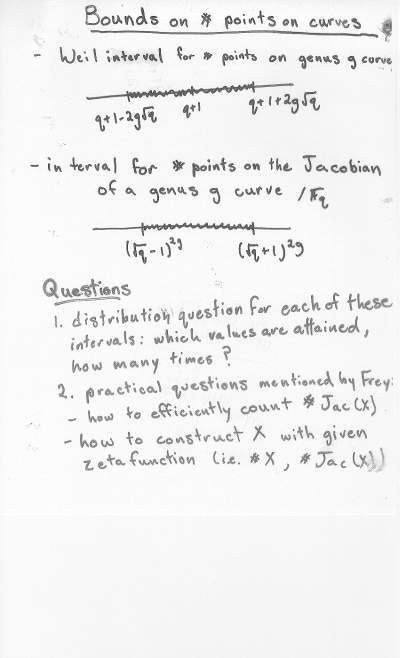 Bounds on # points on curves
- Weil interval for # points on genus g curve
q+1-2g√q q+1 q+1+2g√q
- interval for # points on the Jacobian
of a genus g curve /𝔽q
(√q-1)^2g (√q+1)^2g
Questions
1. distribution question for each of these
intervals: which values are attained,
how many times?
2. practical questions mentioned by Frey:
- how to efficiently count # Jac(X)
- how to construct X with given
zeta function (i.e. #X, #Jac(X))